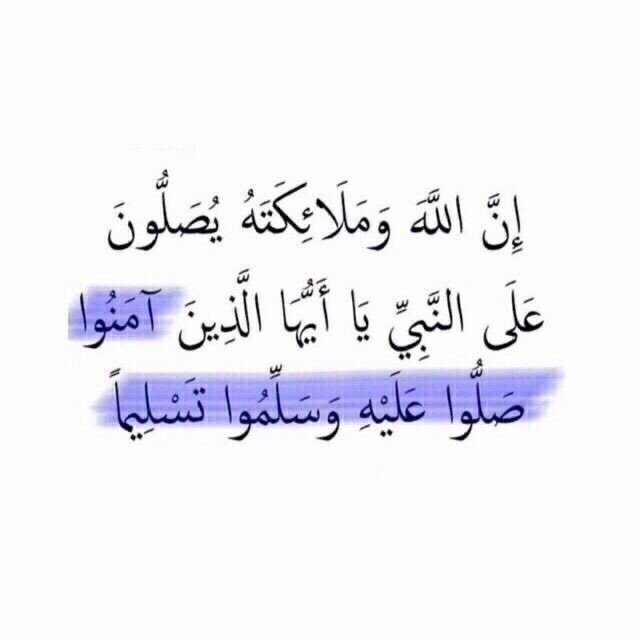 إِنَّ اللَّهَ وَمَلَائِكَتَهُ يُصَلُّونَ
عَلَى النَّبِيِّ يَا أَيُّهَا الَّذِينَ آمَنُوا
صَلُّوا عَلَيْهِ وَسَلِّمُوا تَسْلِيماً